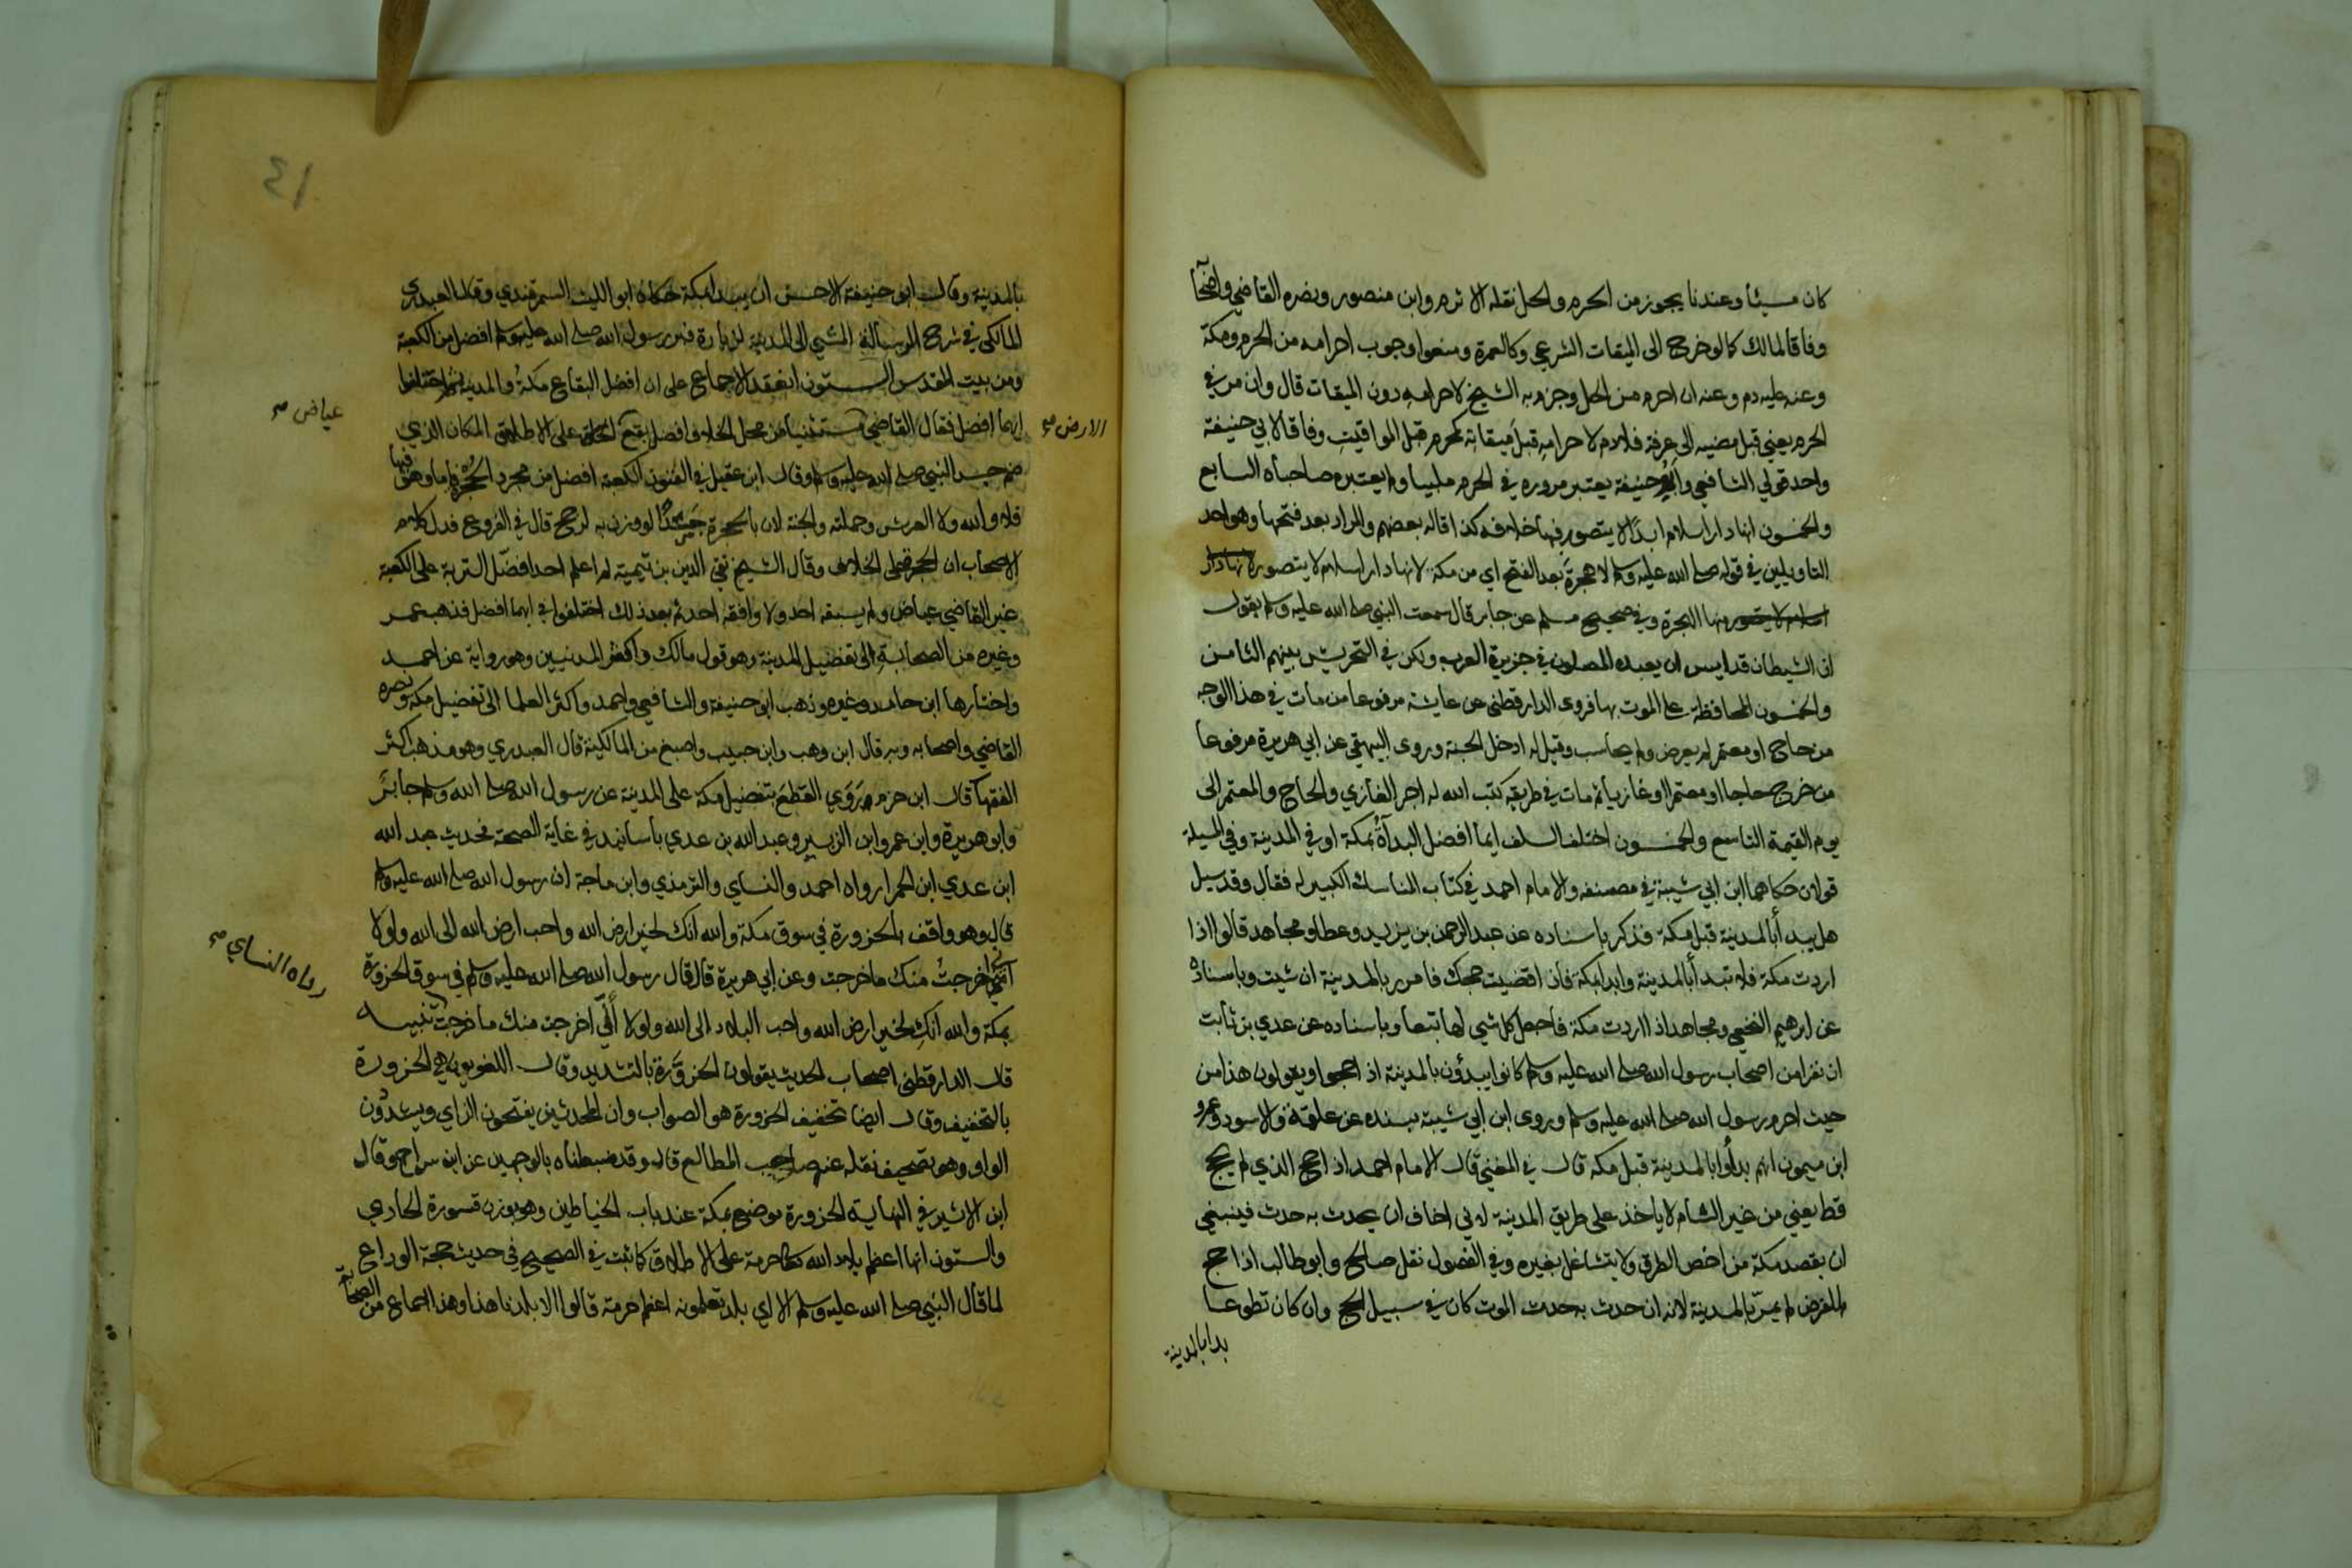 كان مسيئا وعندنا يجوز من الحرم والحل نقله الاثرم وابن منصور ونصره القاضي واصحابه
وفاقا لمالك كما لو خرج الى الميقات الشرعي وكالعمرة ومنعوا وجوب احرامه من الحرم ومكة
وعنه عليه دم وعنه ان احرم من الحل وجزم به الشيخ لاحرامه دون الميقات قال وان مر في
الحرم يعني قبل مضيه الى عرفة فلا دم لاحرامه قبل ميقاته كمحرم قبل المواقيت وفاقا لابي حنيفة
واحد قولي الشافعي وابو حنيفة يعتبر مروره في الحرم ملبيا ولم يعتبره صاحباه السابع
والخمسون انها دار اسلام ابدا لا يتصور فيها خلافه كذا قاله بعضهم والمراد بعد فتحها وهو احد
التاويلين في قوله صلى الله عليه وسلم لا هجرة بعد الفتح اي من مكة لانها دار اسلام لا يتصور
منها الهجرة وفي صحيح مسلم عن جابر قال سمعت النبي صلى الله عليه وسلم يقول
ان الشيطان قد ايس ان يعبده المصلون في جزيرة العرب ولكن في التحريش بينهم الثامن
والخمسون المحافظة على الموت بها فروى الدارقطني عن عايشة مرفوعا من مات في هذا الوجه
من حاج او معتمر لم يعرض ولم يحاسب وقيل له ادخل الجنة وروى البيهقي عن ابي هريرة مرفوعا
من خرج حاجا او معتمرا او غازيا ثم مات في طريقه كتب الله له اجر الغازي والحاج والمعتمر الى
يوم القيمة التاسع والخمسون اختلف السلف ايما افضل البدأة بمكة او في المدينة وفي المسيلة
قولان حكاهما ابن ابي شيبة في مصنفه والامام احمد في كتاب المناسك الكبير له فقال وقد سيل
هل يبدأ بالمدينة قبل مكة فذكر باسناده عن عبد الرحمن بن يزيد وعطا ومجاهد قالوا اذا
اردت مكة فلا تبدأ بالمدينة وابدا بمكة فاذا قضيت حجك فامرر بالمدينة ان شيت وباسناده
عن ابرهيم النخعي ومجاهد اذا اردت مكة فاجعل كل شي لها تبعا وباسناده عن عدي بن ثابت
ان نفرا من اصحاب رسول الله صلى الله عليه وسلم كانوا يبدؤن بالمدينة اذ احجوا ويقولون هذا من
حيث احرم رسول الله صلى الله عليه وسلم وروى ابن ابي شيبة بسنده عن علقمة والاسود وعمرو
ابن ميمون انهم بدأوا بالمدينة قبل مكة قال في المغني قال الامام احمد اذ احج الذي لم يحج
قط يعني من غير الشام لا ياخذ على طريق المدينة لاني اخاف ان يحدث به حدث فينبغي
ان يقصد مكة من اخص الطرق ولا يتشاغل بغيره وفي الفصول نقل صالح وابو طالب اذا حج
للفرض لم يمر بالمدينة لانه ان حدث به حدث الموت كان في سبيل الحج وان كان تطوعا
بدا بالمدينة
٤١
بالمدينة وقال ابو حنيفة الاحسن ان يبدا بمكة حكاه ابو الليث السمرقندي وقال العبدري
المالكي في شرح الرسالة المشي الى المدينة لزيارة قبر رسول الله صلى الله عليه وسلم افضل من الكعبة
ومن بيت المقدس الستون انعقد الاجماع على ان افضل البقاع مكة والمدينة ثم اختلفوا
ايهما افضل فقال القاضي مستثنيا من محل الخلاف وافضل بقع على الاطلاق المكان الذي
الارض صح
عياض صح
ضم جسد النبي صلى الله عليه وسلم وقال ابن عقيل في الفنون الكعبة افضل من مجرد الحجرة فاما وهو فيها
فلا والله ولا العرش وحملته والجنة لان بالحجرة جسدا لو وزن به لرجح قال في الفروع فدل كلام
الاصحاب ان الحجرة على الخلاف وقال الشيخ تقي الدين بن تيمية لم اعلم احدا فضل التربة على الكعبة
غير القاضي عياض ولم يسبقه احد ولا وافقه احد ثم بعد ذلك اختلفوا في ايهما افضل فذهب عمر
وغيره من الصحابة الى تفضيل المدينة وهو قول مالك واكثر المدنيين وهو رواية عن احمد
واختارها ابن حامد وغيره وذهب ابو حنيفة والشافعي واحمد واكثر العلما الى تفضيل مكة ونصره
القاضي واصحابه وبه قال ابن وهب وابن حبيب واصبغ من المالكية قال العبدري وهو مذهب اكثر
الفقها قال ابن حزم روى القطع بتفضيل مكة على المدينة عن رسول الله صلى الله وسلم جابر
وابو هريرة وابن عمر وابن الزبير وعبد الله بن عدي باسانيد في غاية الصحة فحديث عبد الله
ابن عدي ابن الحمرا رواه احمد والنساي والترمذي وابن ماجة ان رسول الله صلى الله عليه وسلم
قال وهو واقف بالحزورة في سوق مكة والله انك لخير ارض الله واحب ارض الله الى الله ولولا
اني اخرجت منك ما خرجت وعن ابي هريرة قال قال رسول الله صلى الله عليه وسلم في سوق الحزورة
بمكة والله انك لخير ارض الله واحب البلاد الى الله ولولا اني اخرجت منك ما خرجت تنبيه
رواه النساي صح
قال الدارقطني اصحاب الحديث يقولون الحزورة بالتشديد وقال اللغويون هي الحزورة
بالتخفيف وقال ايضا تخفيف الحزورة هو الصواب وان المحدثين يفتحون الزاي ويشددون
الواو وهو تصحيف نقله عنه صاحب المطالع قال وقد ضبطناه بالوجهين عن ابن سراج وقال
ابن الاثير في النهاية الحزورة موضع بمكة عند باب الخياطين وهو بوزن قسورة الحادي
والستون انها اعظم بلاد الله حرمة على الاطلاق كما ثبت في الصحيح في حديث حجة الوداع
لما قال النبي صلى الله عليه وسلم الا اي بلد تعلمونه اعظم حرمة قالوا الا بلدنا هذا وهذا اجماع من الصحابة